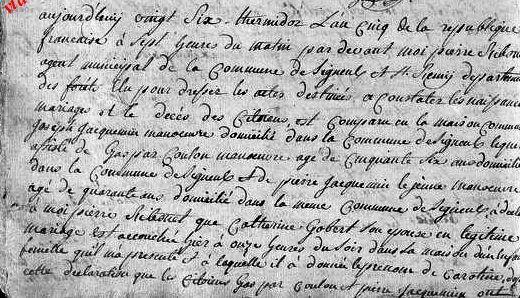 aujourdhuy vingt Six thermidor L'an Cinq de la republique
francaise à Sept heures du matin par devant moi pierre
agent municipal de la Commune de Signeul et St Remy departement
des forêts Elu pour dresser les actes destinés a Constater les naissances
mariages et le décès des Citoiens, est Comparu en la maison Commune
Joseph Jacquemin manoeuvre domicilié dans la Commune de Signeul lequel
assisté de Gaspar Coulon manoeuvre agé de Cinquante Six ans domicilié
dans la Commune de Signeul & de pierre Jacquemin le jeune manoeuvre
agé de quarante ans domicilié dans la meme Commune de Signeul, à declaré
à moi pierre que Catherine Gobert Son epouse en legitime
mariage est accouchée hier à onze heures du Soir dans Sa maison d'un Enfant
femelle qu'il m'a presenté & à laquelle il à donnée le prenom de Caroline,
cette declaration que les Citoiens Gaspar Coulon et pierre Jacquemin ont